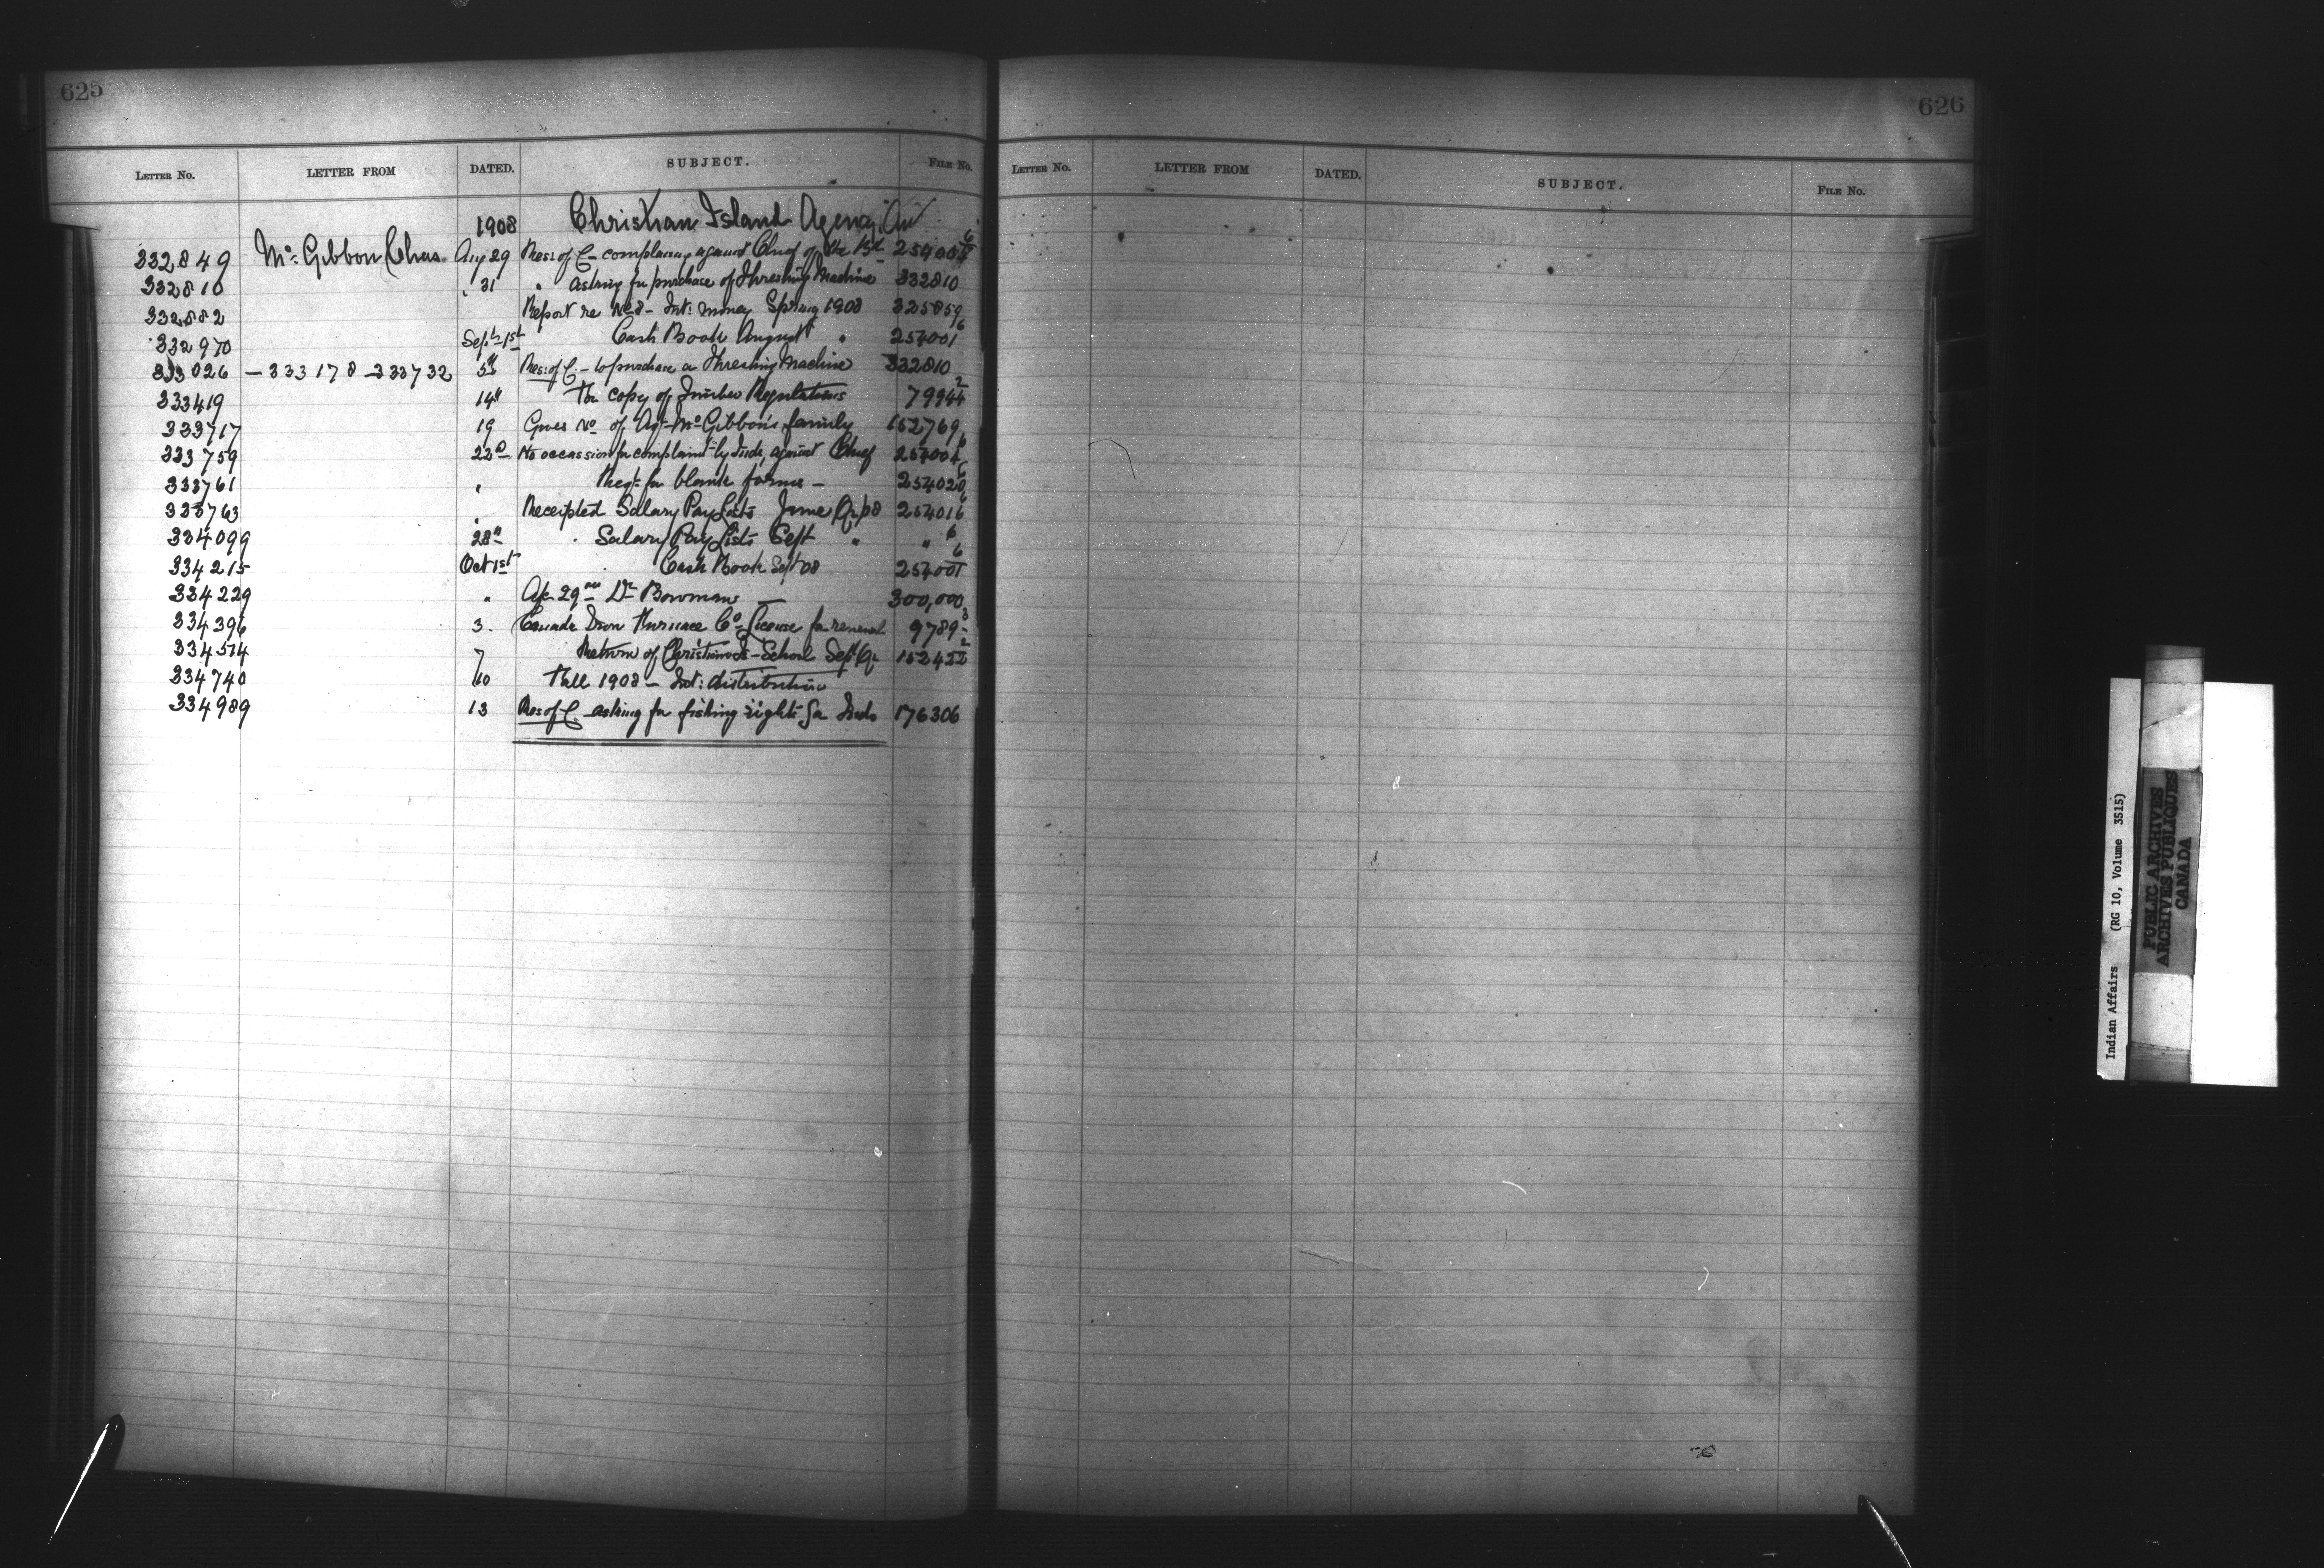 625
LETTER No. LETTER FROM DATED. SUBJECT. FILE No.
1908 Christian Island Agency
332849 Mc Gibbon Chas Aug 29 Res: of C - complaining against Chief of the
332810 " 31 " asking for purchase of Threshing Machine 332810
332882 Report re - Int: money Spring 1908 325859
332970 Sept 1st Cash Book August " 254001 6
333026 - 333178 - 333732 5th Res: of C. - to purchase a Threshing Machine 332810
333419 14th For copy of Timber Regulations 2
333717 19 Gives No of Agt Mc Gibbon's family 152769
333759 22d No occassion for complaint by Inds, against Chief 254004 6
333761 " Reqt for blank forms - 254020 6
333763 " Receipted Salary Pay Lists June Qr/08 254016 6
334099 28th Salary Pay Lists Sept " " 6
334215 Oct 1st Cash Book Sept 08 254001 6
334229 " Dr Bowman 300,000
334396 3. Canada Iron Furnace Co License for renewal 9789 3
334514 7 Return of Christian Is - School Sept Qr 152422 2
334740 10 Fall 1908 - Int: distribution
334989 13 Res of C. asking for fishing rights for Inds 176306
626
LETTER No. LETTER FROM DATED. SUBJECT. FILE No.
Indian Affairs (RG 10, Volume 3515)
PUBLIC ARCHIVES
ARCHIVES PUBLIQUES
CANADA